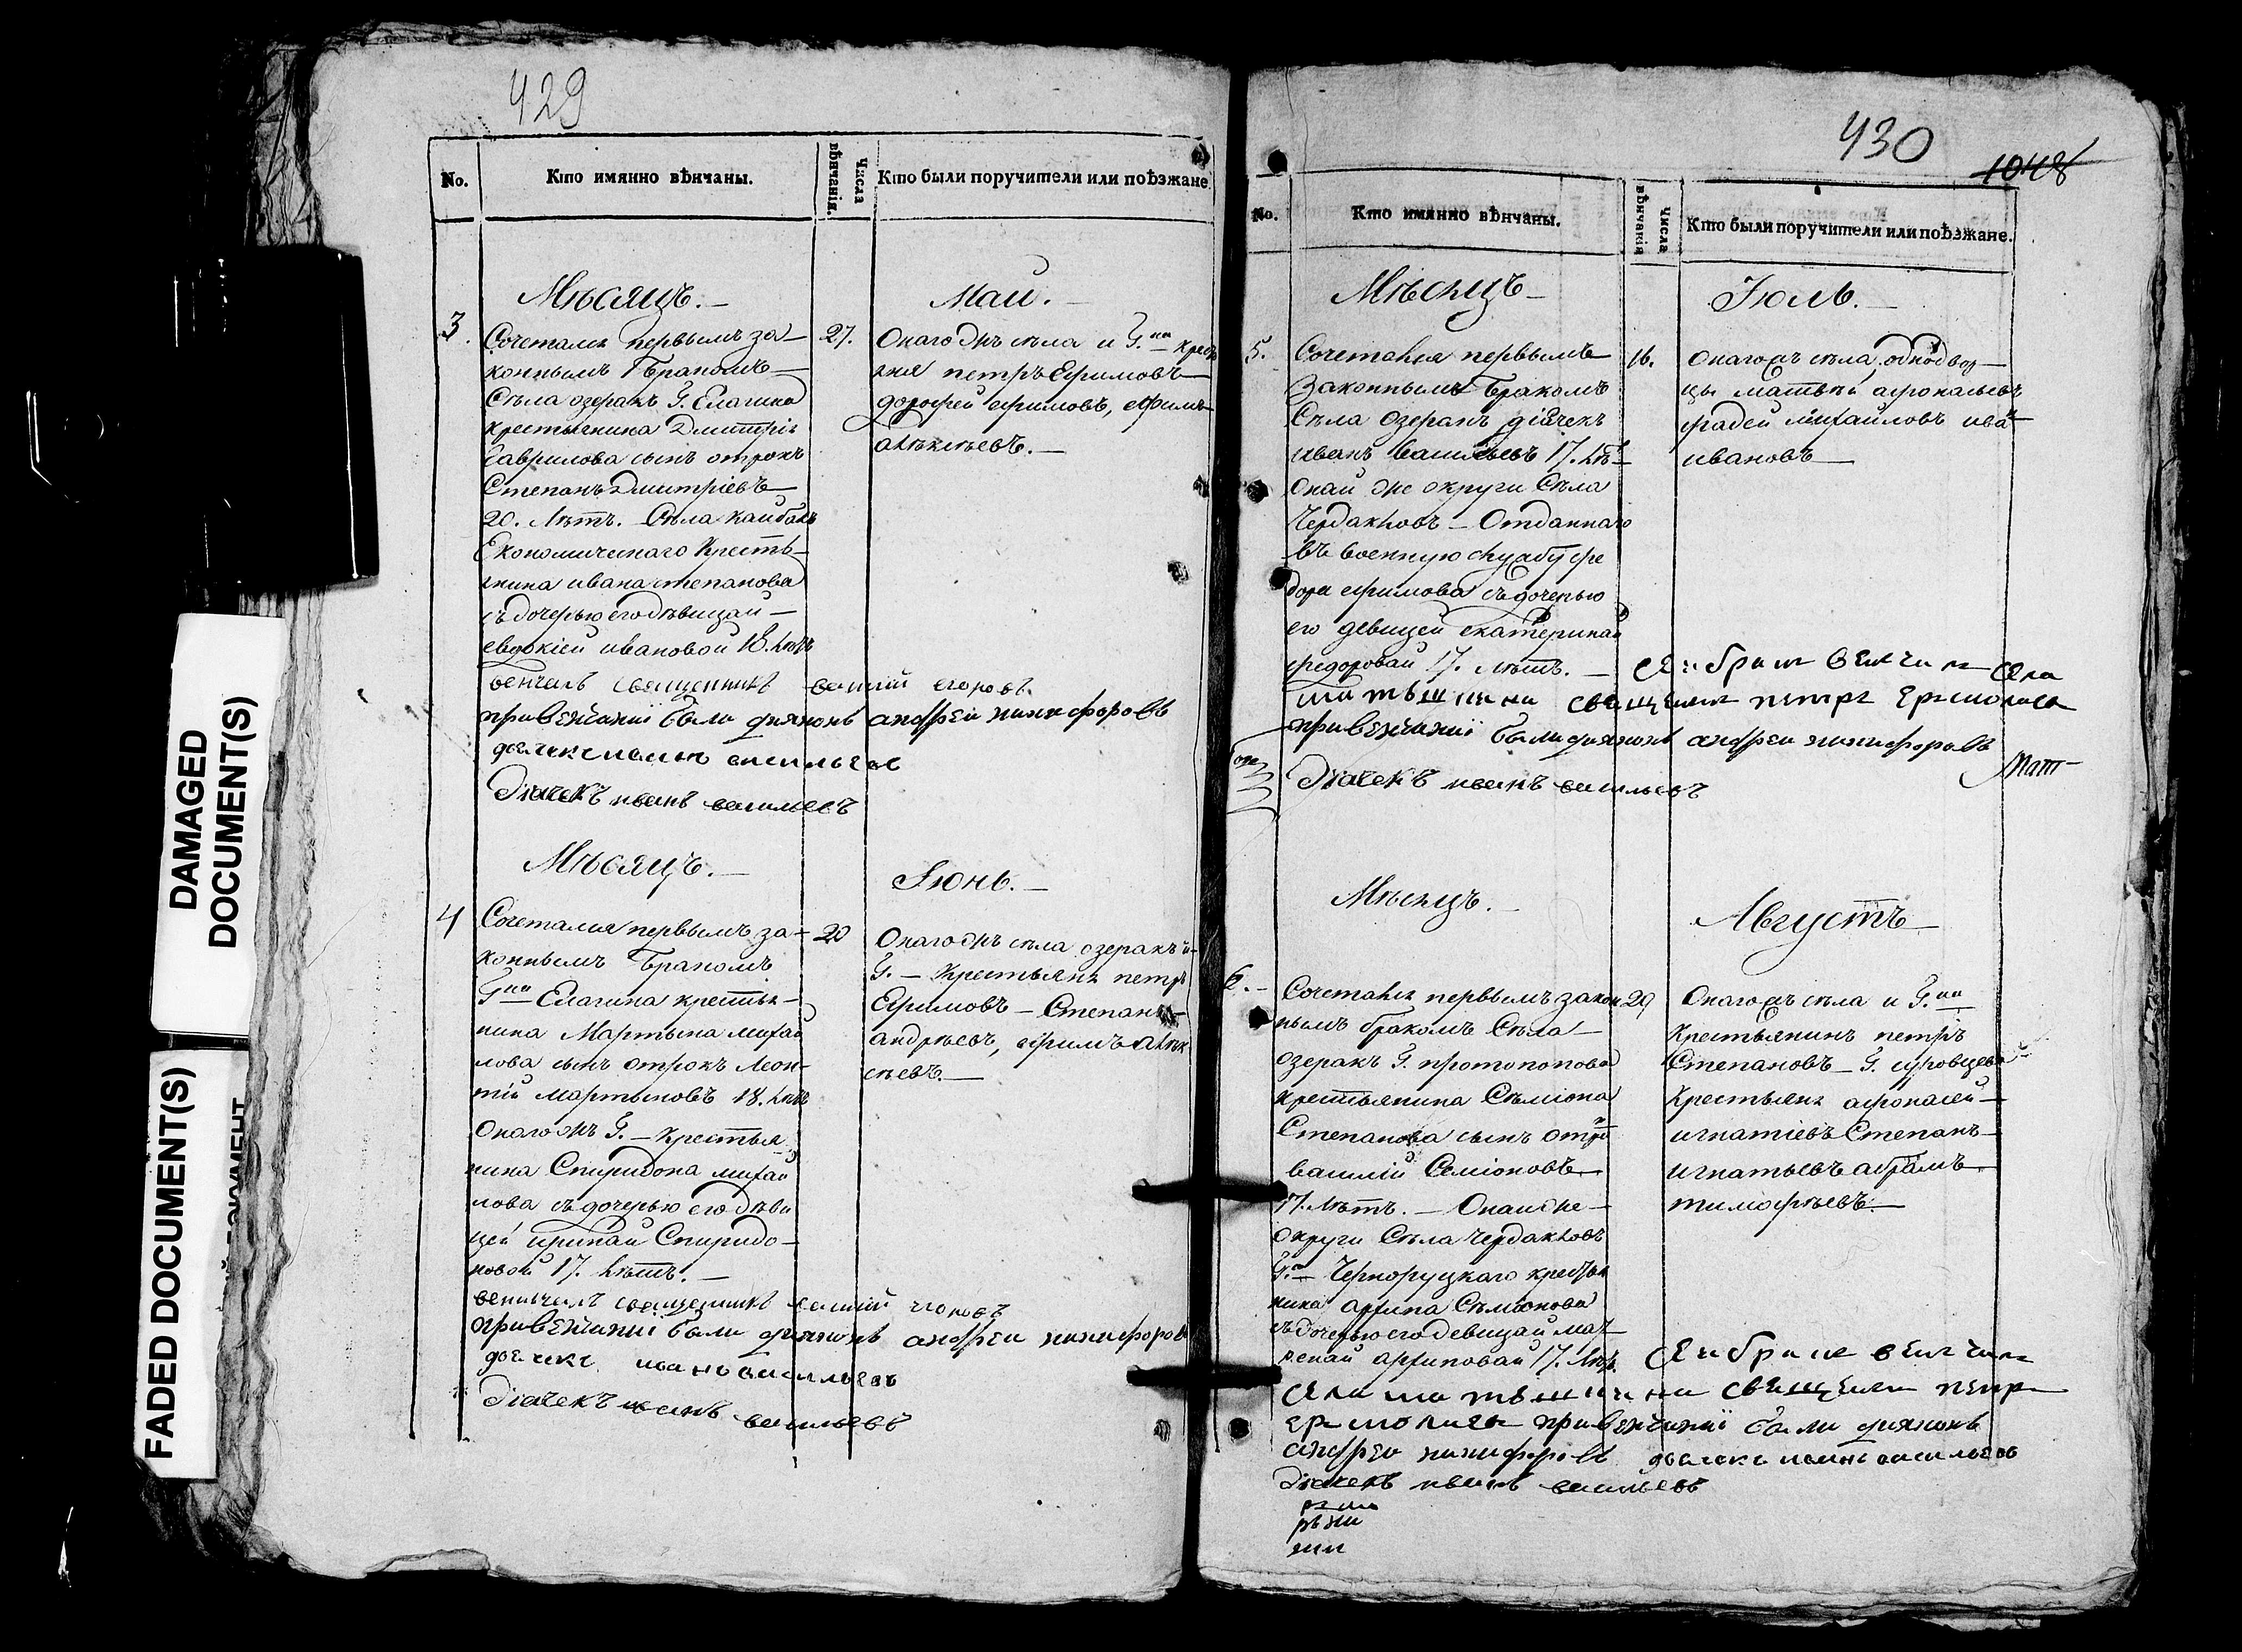 429
No.
Кто имянно вѣнчаны.
Числа вѣнчанія.
Кто были поручители или поѣзжане
Мѣсяцъ.
Маіи.
3.
Сочетался первымъ за-
коннымъ бракомъ
Села озеракъ Г. Елагина
крестьянина Дмитрія
Гаврилова сынъ отрокъ
Степанъ Дмитріевъ
20. лѣтъ. Села
Економическаго Кресть-
янина ивана степанова
съ дочерью его дѣвицаи
евдокіеи ивановои 18. лѣтъ
27.
Онагожъ села и Г.на кресть
яня петръ Ефимовъ
дорофеи ефимовъ, ефимъ
алѣксѣевъ.
венчалъ священникъ василіи егоровъ
при венчаниі были диаконъ андреи никифоровъ
дьячекъ иванъ васильевъ
Мѣсяцъ.
Іюнь.
4
Сочетался первымъ за-
коннымъ бракомъ
Г.на Елагина крестья-
нина Мартына михаи
лова сынъ отрокъ Леон-
тіи мартыновъ 18. лѣтъ
Онагожъ Г. Крестья
нина Спиридона михаи
лова съ дочерью его дѣви
цеи ириной Спиридо-
новой 17. лѣтъ.
20
Онагожъ села озеракъ и
Г. Крестьяня петръ
Ефимовъ Степанъ
андреевъ, ефимъ алѣк
сѣевъ.
венчалъ священникъ василіи егоровъ
при венчаниі были диаконъ андреи никифоровъ
дьячекъ иванъ васильевъ
430
1048
No.
Кто имянно вѣнчаны.
Числа вѣнчанія
Кто были поручители или поѣзжане.
Мѣсяцъ
Іюль.
5.
Сочетался первымъ
законнымъ бракомъ
Села озеракъ діячекъ
иванъ васильевъ 17. лѣт
Онаи же округи Села
Чердаковъ Отданнаго
въ военную службу фе
дора ефимова съ дочерью
его девицеи екатеринаи
федороваи 17. лѣтъ.
16.
Онагожъ села, однодвор-
цы матвеи афонасьевъ
фадеи михаиловъ ива
ивановъ
села
священникъ петръ Ермолаевъ
при венчаниі были диаконъ андреи никифоровъ
Діячекъ иванъ васильевъ
Мѣсяцъ.
Августъ
6.
Сочетался первымъ закон
нымъ бракомъ Села
озеракъ Г. протопопова
крестьянина Семіона
Степанова сынъ отро
василіи Семіоновъ
17. лѣтъ. Онаи же
округи Села Чердаковъ
Г.на Черноруцкаго крестья
нина архипа Семіонова
съ дочерью его девицаи мат
ренаи архиповаи 17. лѣтъ
29
Онагожъ села и Г.на
Крестьянинъ петръ
Степановъ Г.
Крестьяня афонасеи
игнатіевъ Степанъ
игнатьевъ абрамъ
тимофѣевъ.
села священникъ петръ
ермолаевъ при венчаниі были диаконъ
андреи никифоровъ дьячекъ иванъ васильевъ
Діячекъ иванъ васильевъ
DAMAGED DOCUMENT(S)
FADED DOCUMENT(S)